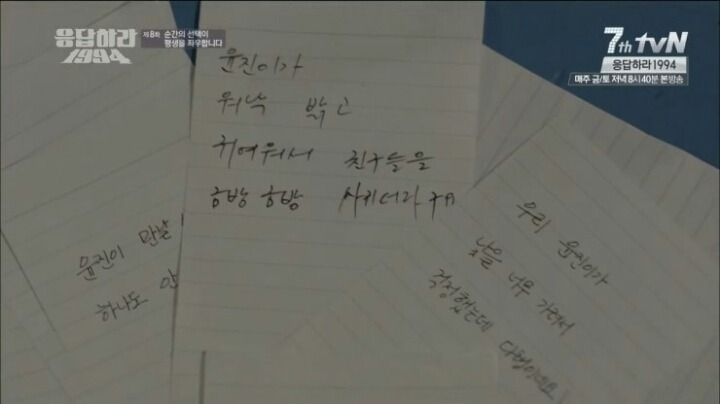 응답하라
1994
제8화 순간의 선택이
평생을 좌우합니다
7th tvN
응답하라1994
매주 금/토 저녁 8시40분 본방송
윤진이가
워낙 밝고
귀여워서 친구들을
금방 금방 사귀더라구요
윤진이 만날
하나도 안
우리 윤진이가
낯을 너무 가려서
걱정했는데 다행이네요!